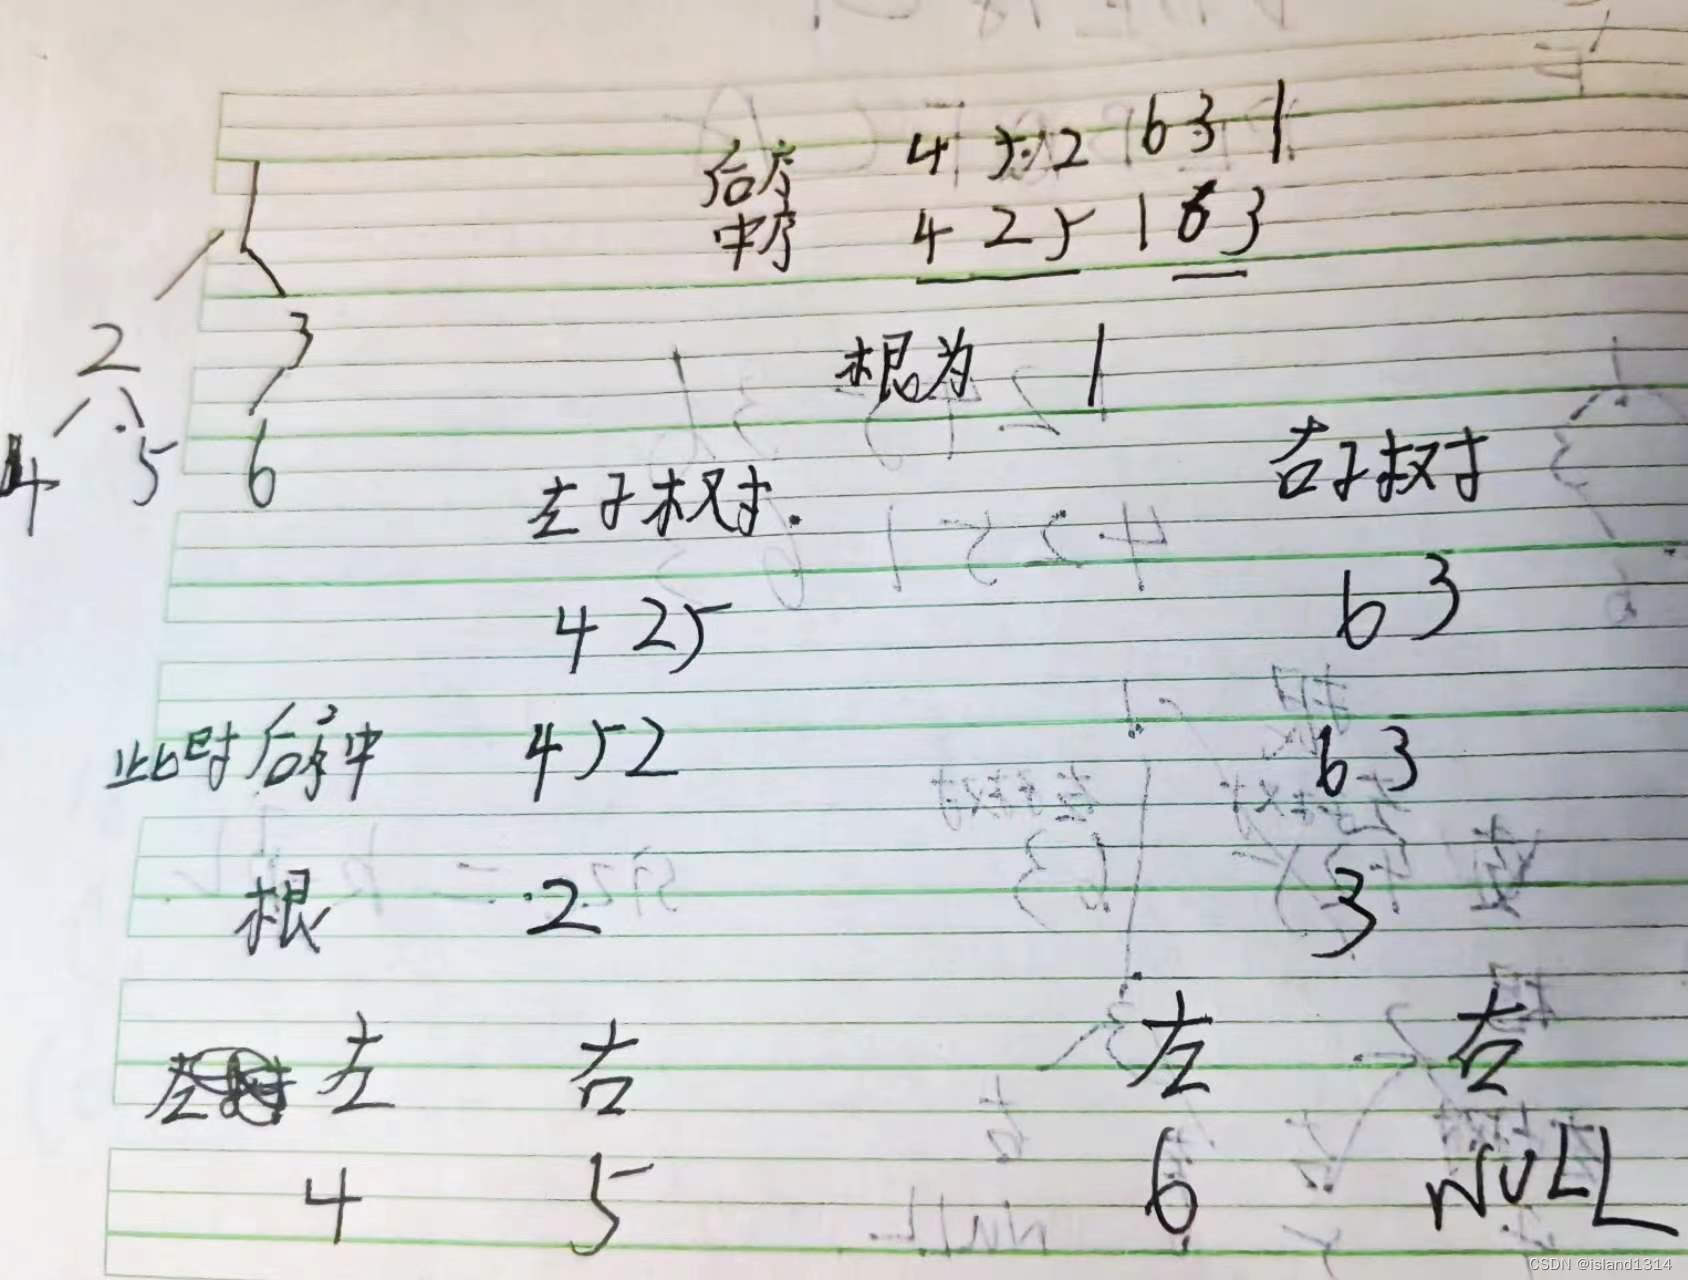 后序 4 5 2 6 3 1
中序 4 2 5 1 6 3
1
根为 1
2 3
4 5 6
左子树. 右子树
4 2 5 6 3
此时后序中 4 5 2 6 3
根 2 3
左 左 右 左 右
4 5 6 NULL
CSDN @island1314